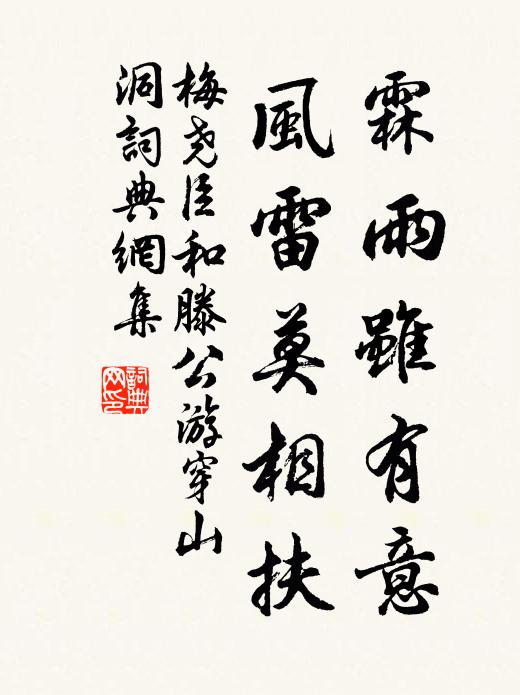 霖雨雖有意
風雷莫相扶
梅尧臣和滕公游穿山
洞詞典網集
詞典网印